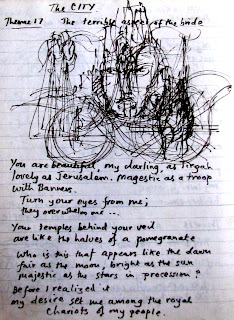 The CITY
Theme 17 The terrible aspect of the bride
You are beautiful, my darling, as Tirzah
lovely as Jerusalem. Magestic as a troop
with Banners.
Turn your eyes from me;
they overwhelm me ...
Your temples behind your veil
are like the halves of a pomegranate
Who is this that appears like the dawn
fair as the moon, bright as the sun
majestic as the stars in procession?
Before I realized it
my desire set me among the royal
Chariots of my people.